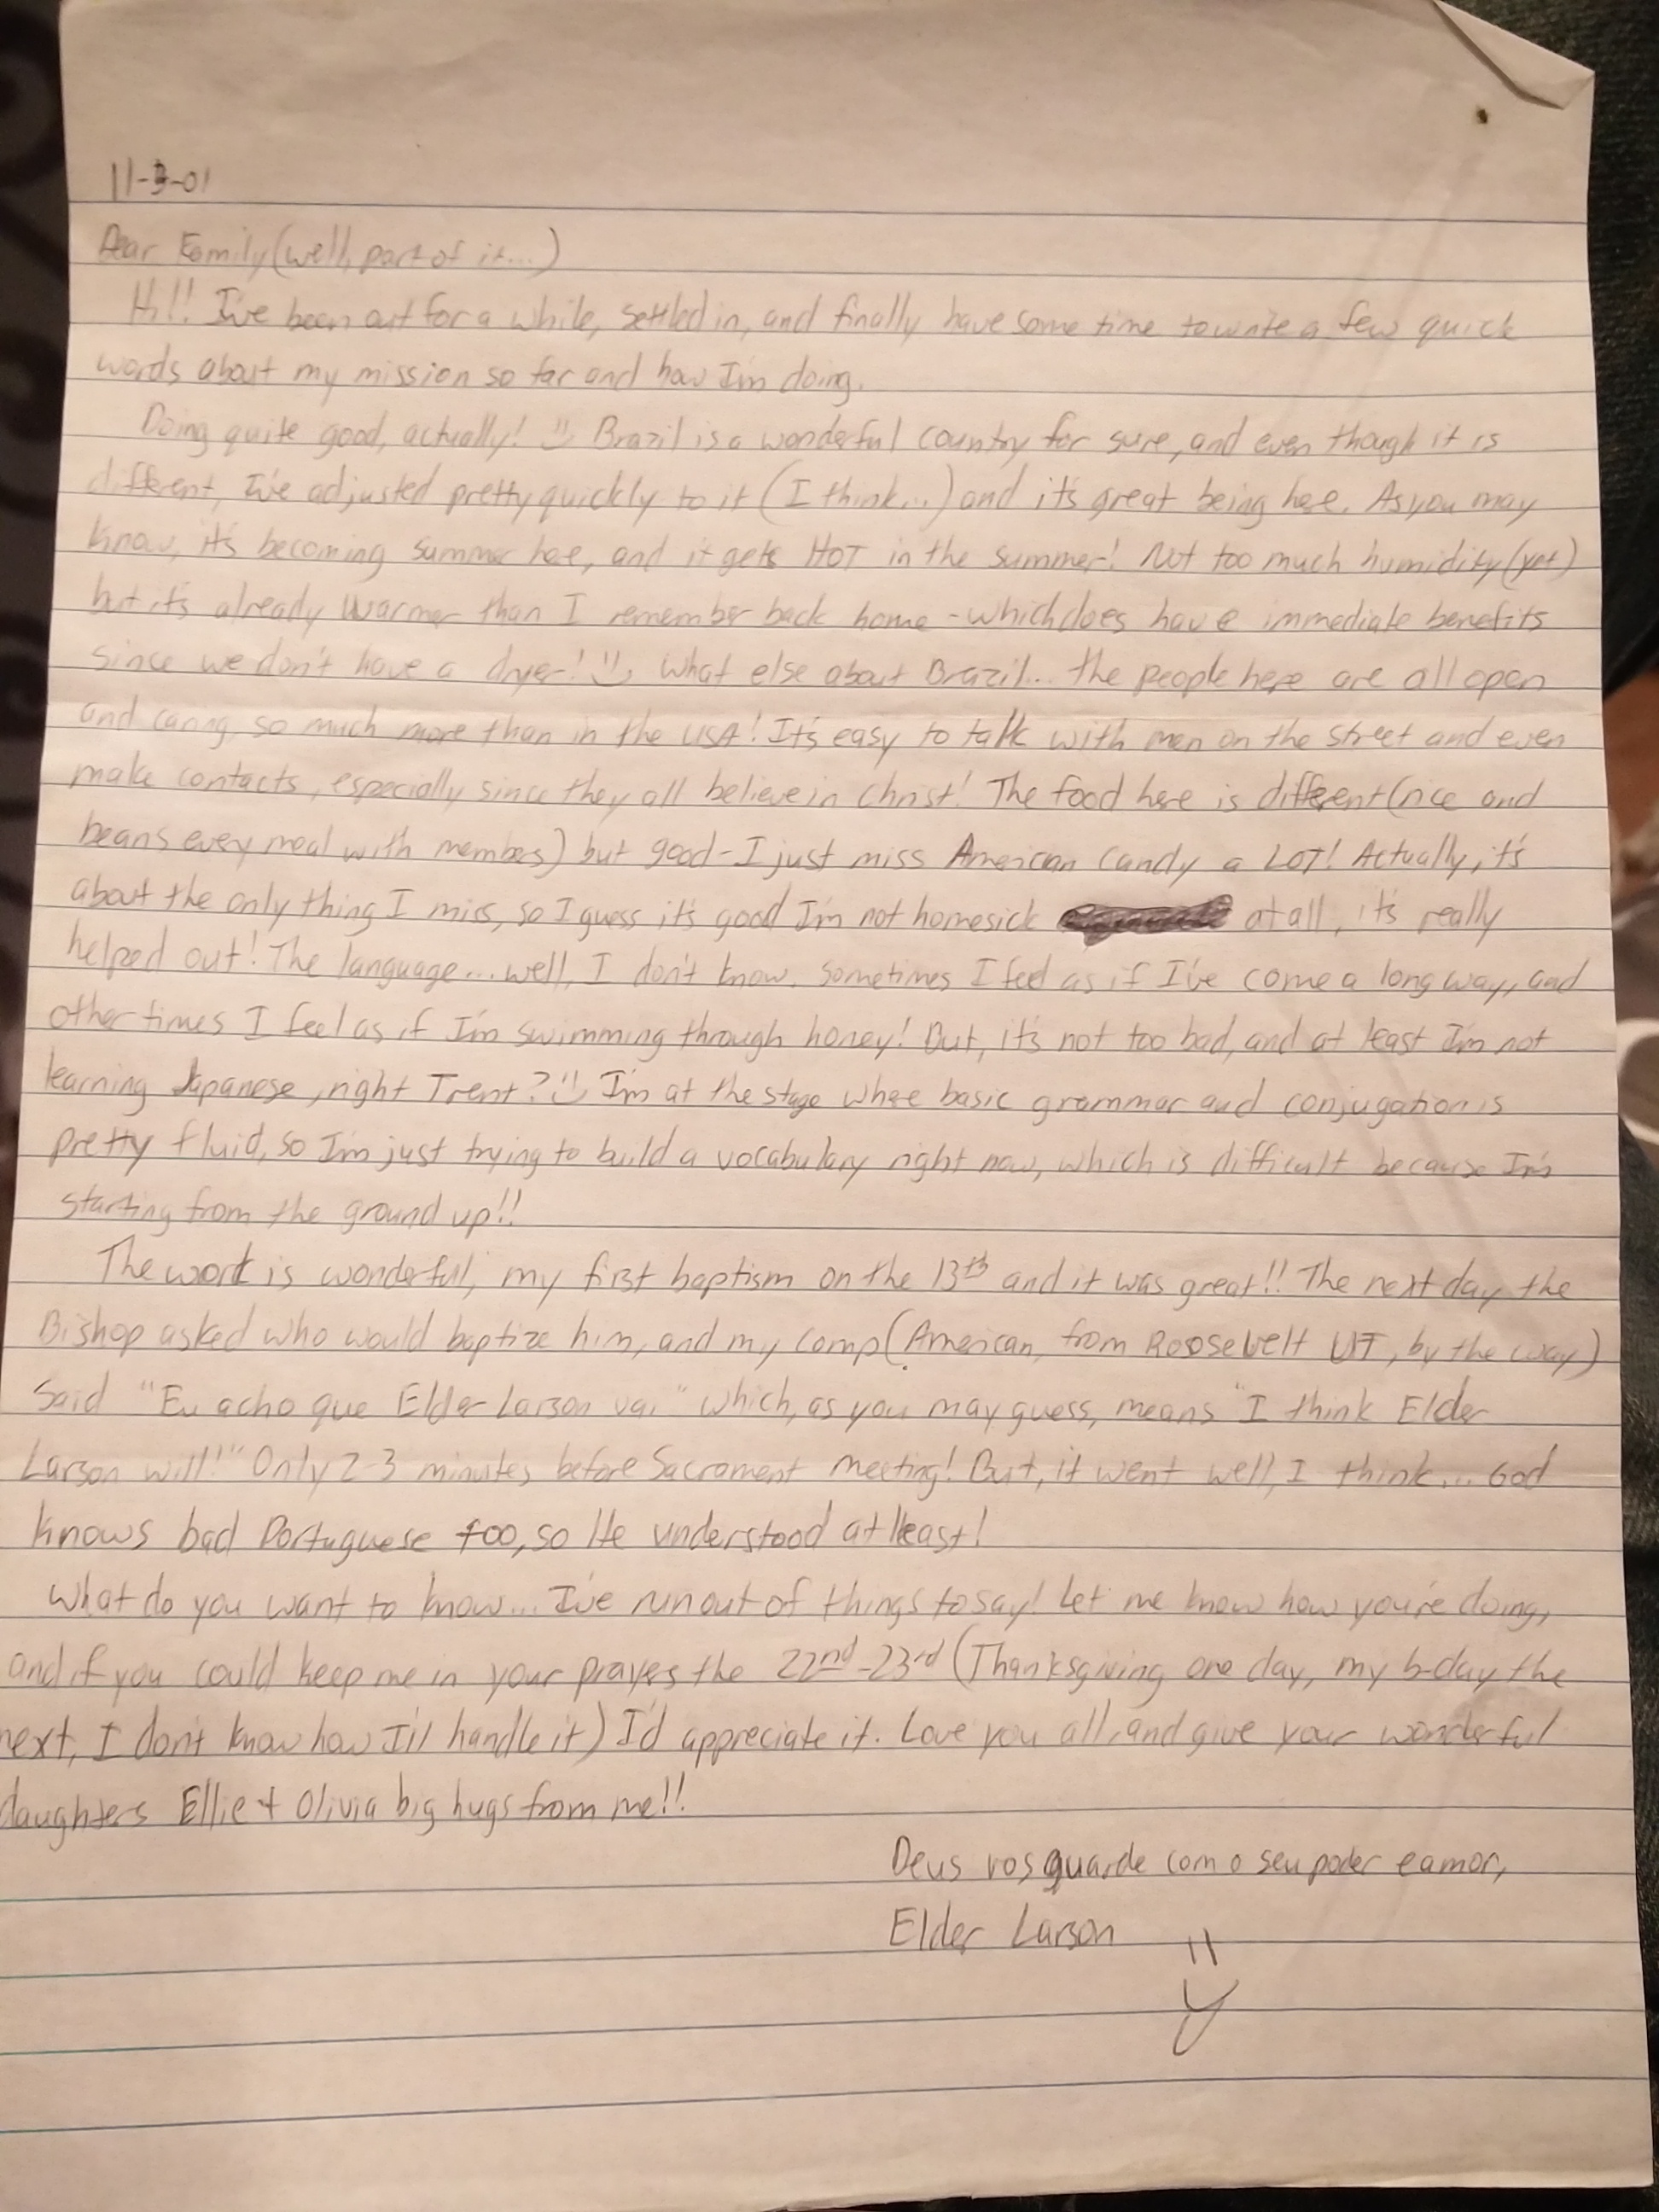 11-3-01
Dear Family (well, part of it...)
Hi!! I've been out for a while, settled in, and finally have some time to write a few quick
words about my mission so far and how I'm doing.
Doing quite good, actually! Brazil is a wonderful country for sure, and even though it is
different, I've adjusted pretty quickly to it (I think...) and it's great being here. As you may
know, it's becoming summer here, and it gets HOT in the summer! Not too much humidity (yet)
but it's already warmer than I remember back home - which does have immediate benefits
since we don't have a dryer! What else about Brazil... the people here are all open
and caring, so much more than in the USA! It's easy to talk with men on the street and even
make contacts, especially since they all believe in Christ! The food here is different (rice and
beans every meal with members) but good - I just miss American candy a LOT! Actually, it's
about the only thing I miss, so I guess it's good I'm not homesick at all, it's really
helped out! The language... well, I don't know. Sometimes I feel as if I've come a long way, and
other times I feel as if I'm swimming through honey! But, it's not too bad, and at least I'm not
learning Japanese, right Trent? I'm at the stage where basic grammar and conjugation is
pretty fluid, so I'm just trying to build a vocabulary right now, which is difficult because I'm
starting from the ground up!!
The work is wonderful, my first baptism on the 13th and it was great!! The next day the
Bishop asked who would baptize him, and my comp (American, from Roosevelt UT, by the way)
said "Eu acho que Elder Larson vai" which, as you may guess, means "I think Elder
Larson will!" Only 2-3 minutes before Sacrament meeting! But, it went well, I think... God
knows bad Portuguese too, so He understood at least!
What do you want to know... I've run out of things to say! Let me know how you're doing,
and if you could keep me in your prayers the 22nd-23rd (Thanksgiving one day, my b-day the
next, I don't know how I'll handle it) I'd appreciate it. Love you all, and give your wonderful
daughters Ellie + Olivia big hugs from me!!
Deus vos guarde com o seu poder e amor,
Elder Larson